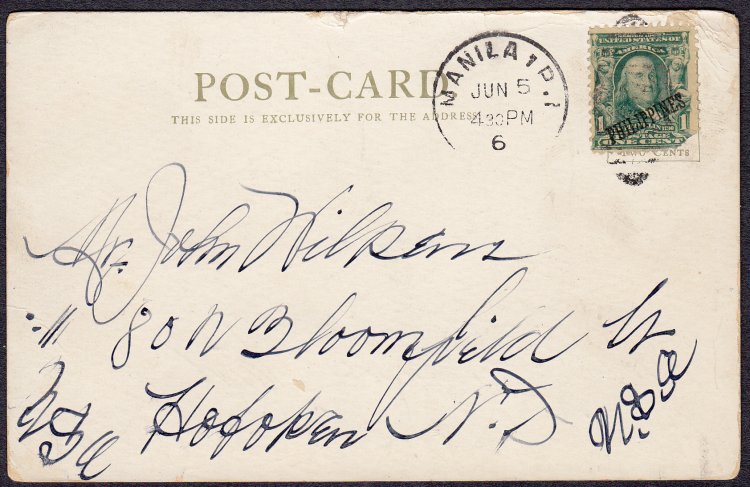 POST-CARD
THIS SIDE IS EXCLUSIVELY FOR THE ADDRESS
MANILA P.I.
JUN 5
4 30 PM
6
UNITED STATES OF
AMERICA
PHILIPPINES
1
ONE CENT
TWO CENTS
Mr. John Wilkens
" 80 N Bloomfield St
Hoboken N.J.
U.S.A
U.S.A